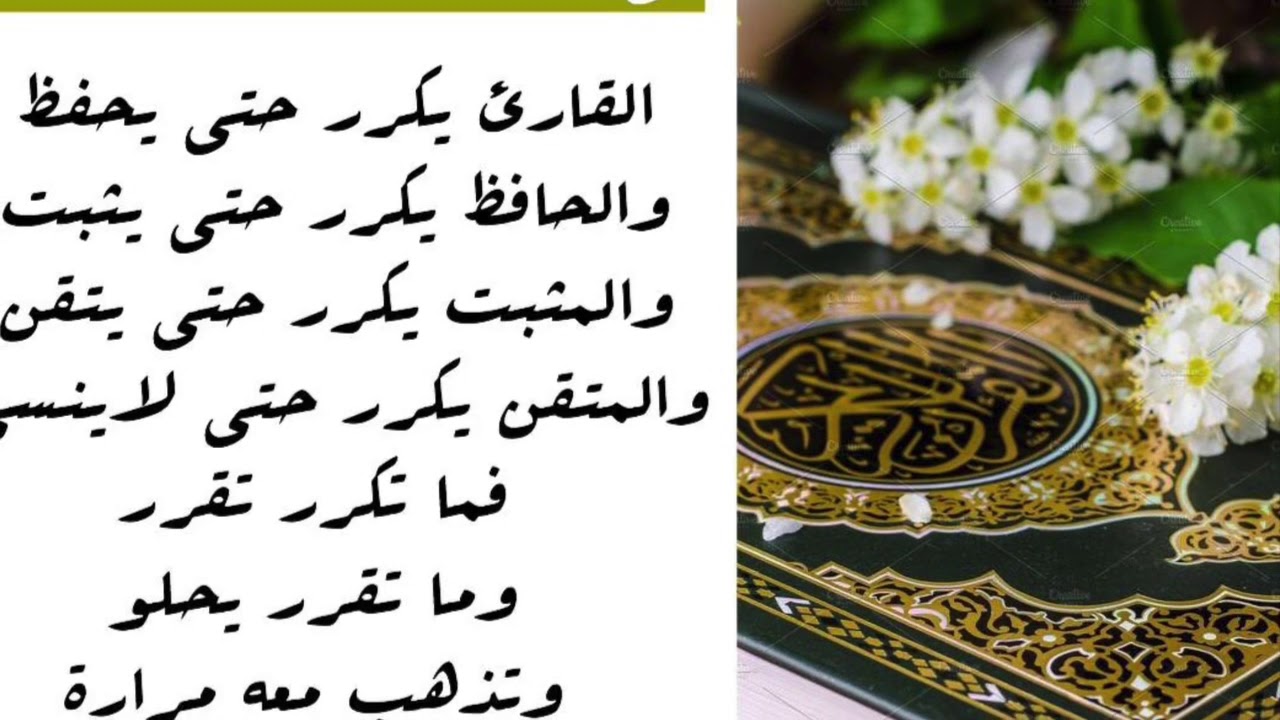 القارئ يكرر حتى يحفظ
والحافظ يكرر حتى يثبت
والمثبت يكرر حتى يتقن
والمتقن يكرر حتى لاينسى
فما تكرر تقرر
وما تقرر يحلو
وتذهب معه مرارة
القرآن الكريم